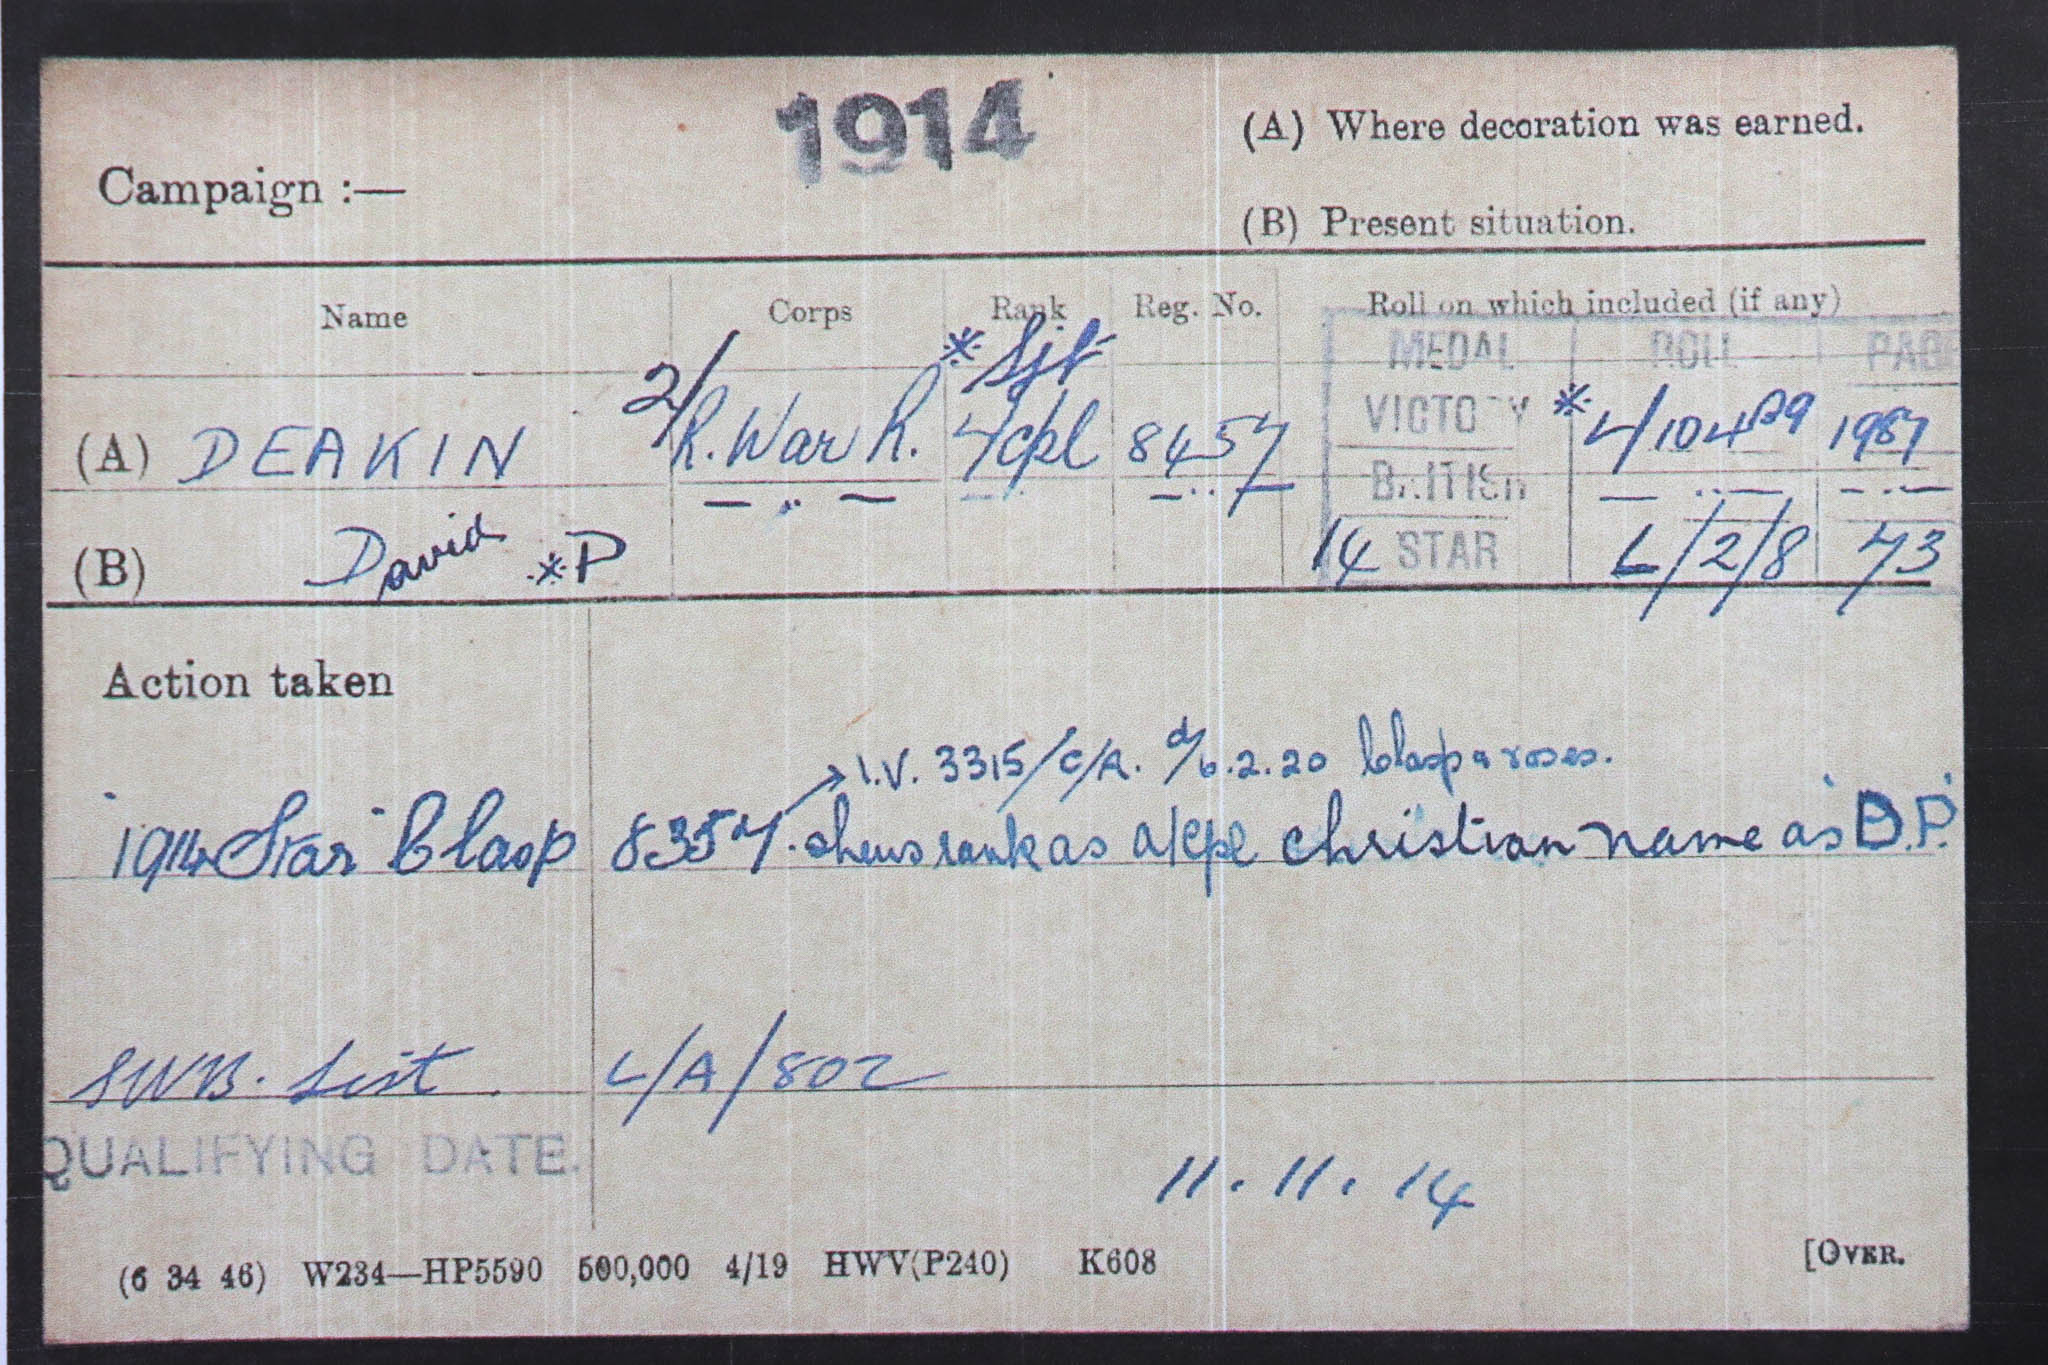 1914
(A) Where decoration was earned.
Campaign :—
(B) Present situation.
Name Corps Rank Reg. No. Roll on which included (if any)
* Sjt MEDAL ROLL PAGE
(A) DEAKIN 2/R. War R. A/Cpl 8457 VICTORY * L/104 B9 1987
— „ — — „ — — „ — BRITISH — „ — — „ —
(B) David *P 14 STAR L/2/8 73
Action taken
→ I.V. 3315/C/A. d/6.2.20 Clasp & roses.
"1914 Star" Clasp 8357. shews rank as a/Cpl christian name as 'D.P.'
SWB. List L/A/802
QUALIFYING DATE. 11.11.14
(6 34 46) W234—HP5590 500,000 4/19 HWV(P240) K608 [OVER.